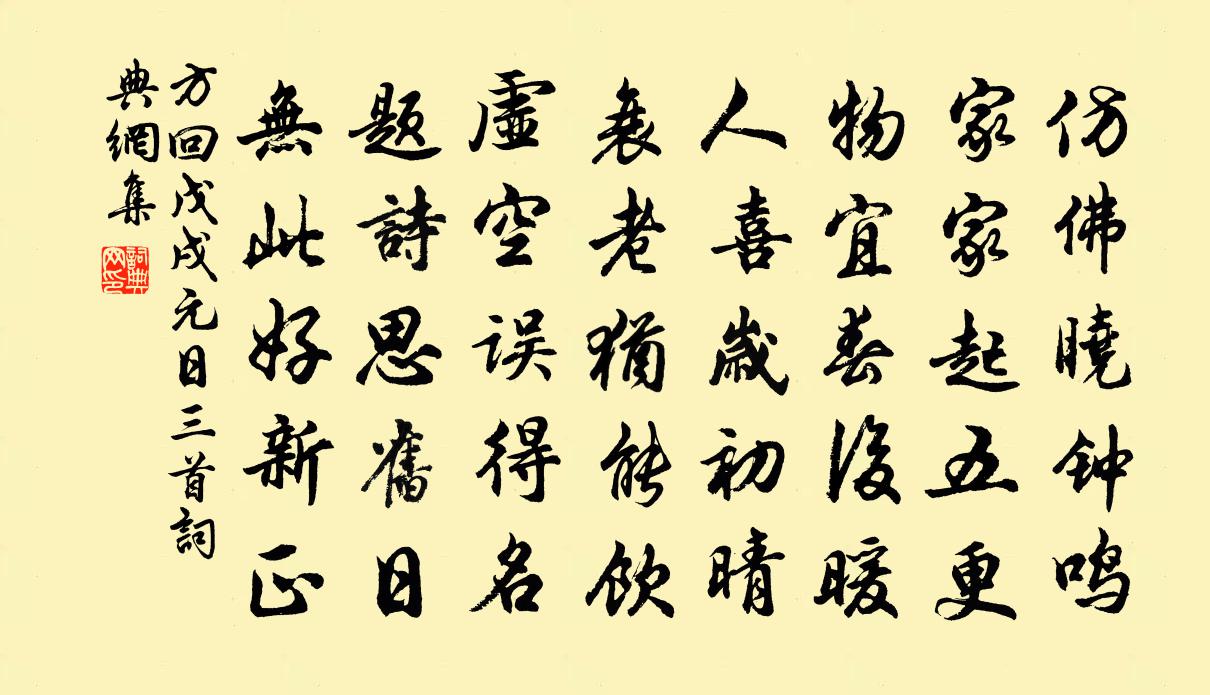 仿佛曉钟鸣
家家起五更
物宜春後暖
人喜歲初晴
衰老猶能飲
虛空误得名
题詩思舊日
無此好新正
方回戊戌元日三首詞
典網集
詞典
网印